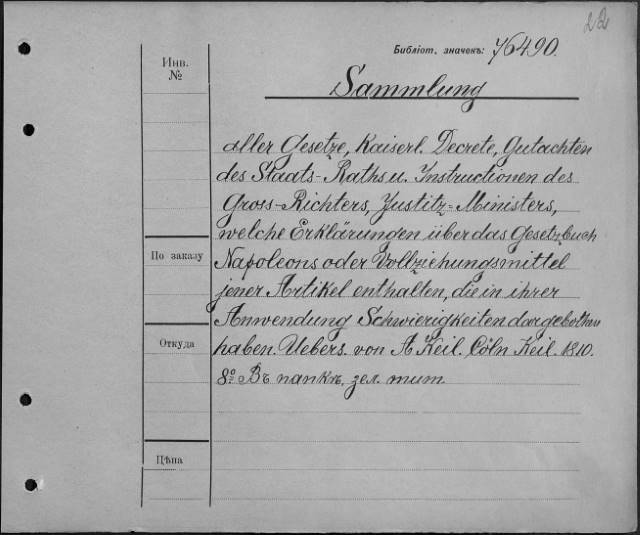 22
Библіот. значекъ: 76490.
Инв.
№
Sammlung
aller Gesetze, Kaiserl. Decrete, Gutachten
des Staats-Raths u. Instructionen des
Gross-Richters, Justitz-Ministers,
welche Erklärungen über das Gesetzbuch
По заказу
Napoleons oder Vollziehungsmittel
jener Artikel enthalten, die in ihrer
Anwendung Schwierigkeiten dargebothen
Откуда
haben. Uebers. von A Keil. Cöln Keil. 1810.
8º Въ папкѣ, зел. тит.
Цѣна